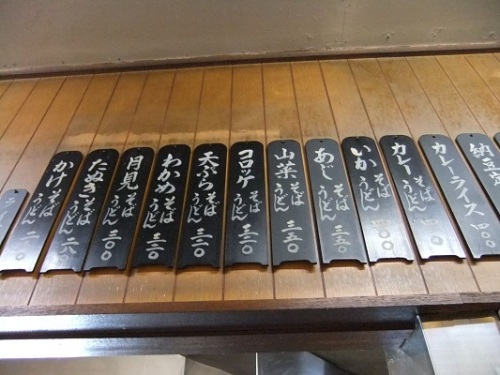 かけ そば うどん 二八〇
たぬき そば うどん 三〇〇
月見 そば うどん 三三〇
わかめ そば うどん 三三〇
天ぷら そば うどん 三二〇
コロッケ そば うどん 三二〇
山菜 そば うどん 三五〇
あじ そば うどん 三五〇
いか そば うどん 四〇〇
カレー そば うどん 四〇〇
カレーライス 四〇〇
納豆